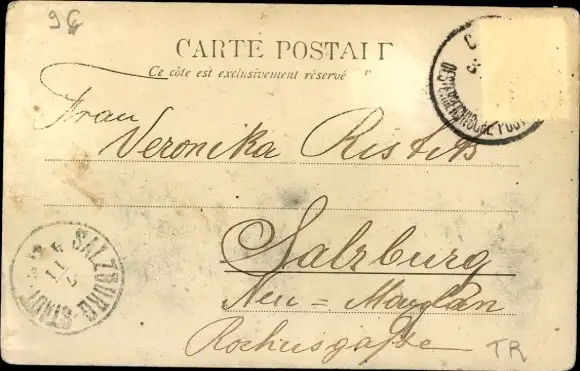 9
CARTE POSTALE
Ce côte est exclusivement réservé
OESTERREICHISCHE POST
Frau
Veronika
Salzburg
Neu = Maxglan
Rochusgasse
SALZBURG
-STADT-
TR